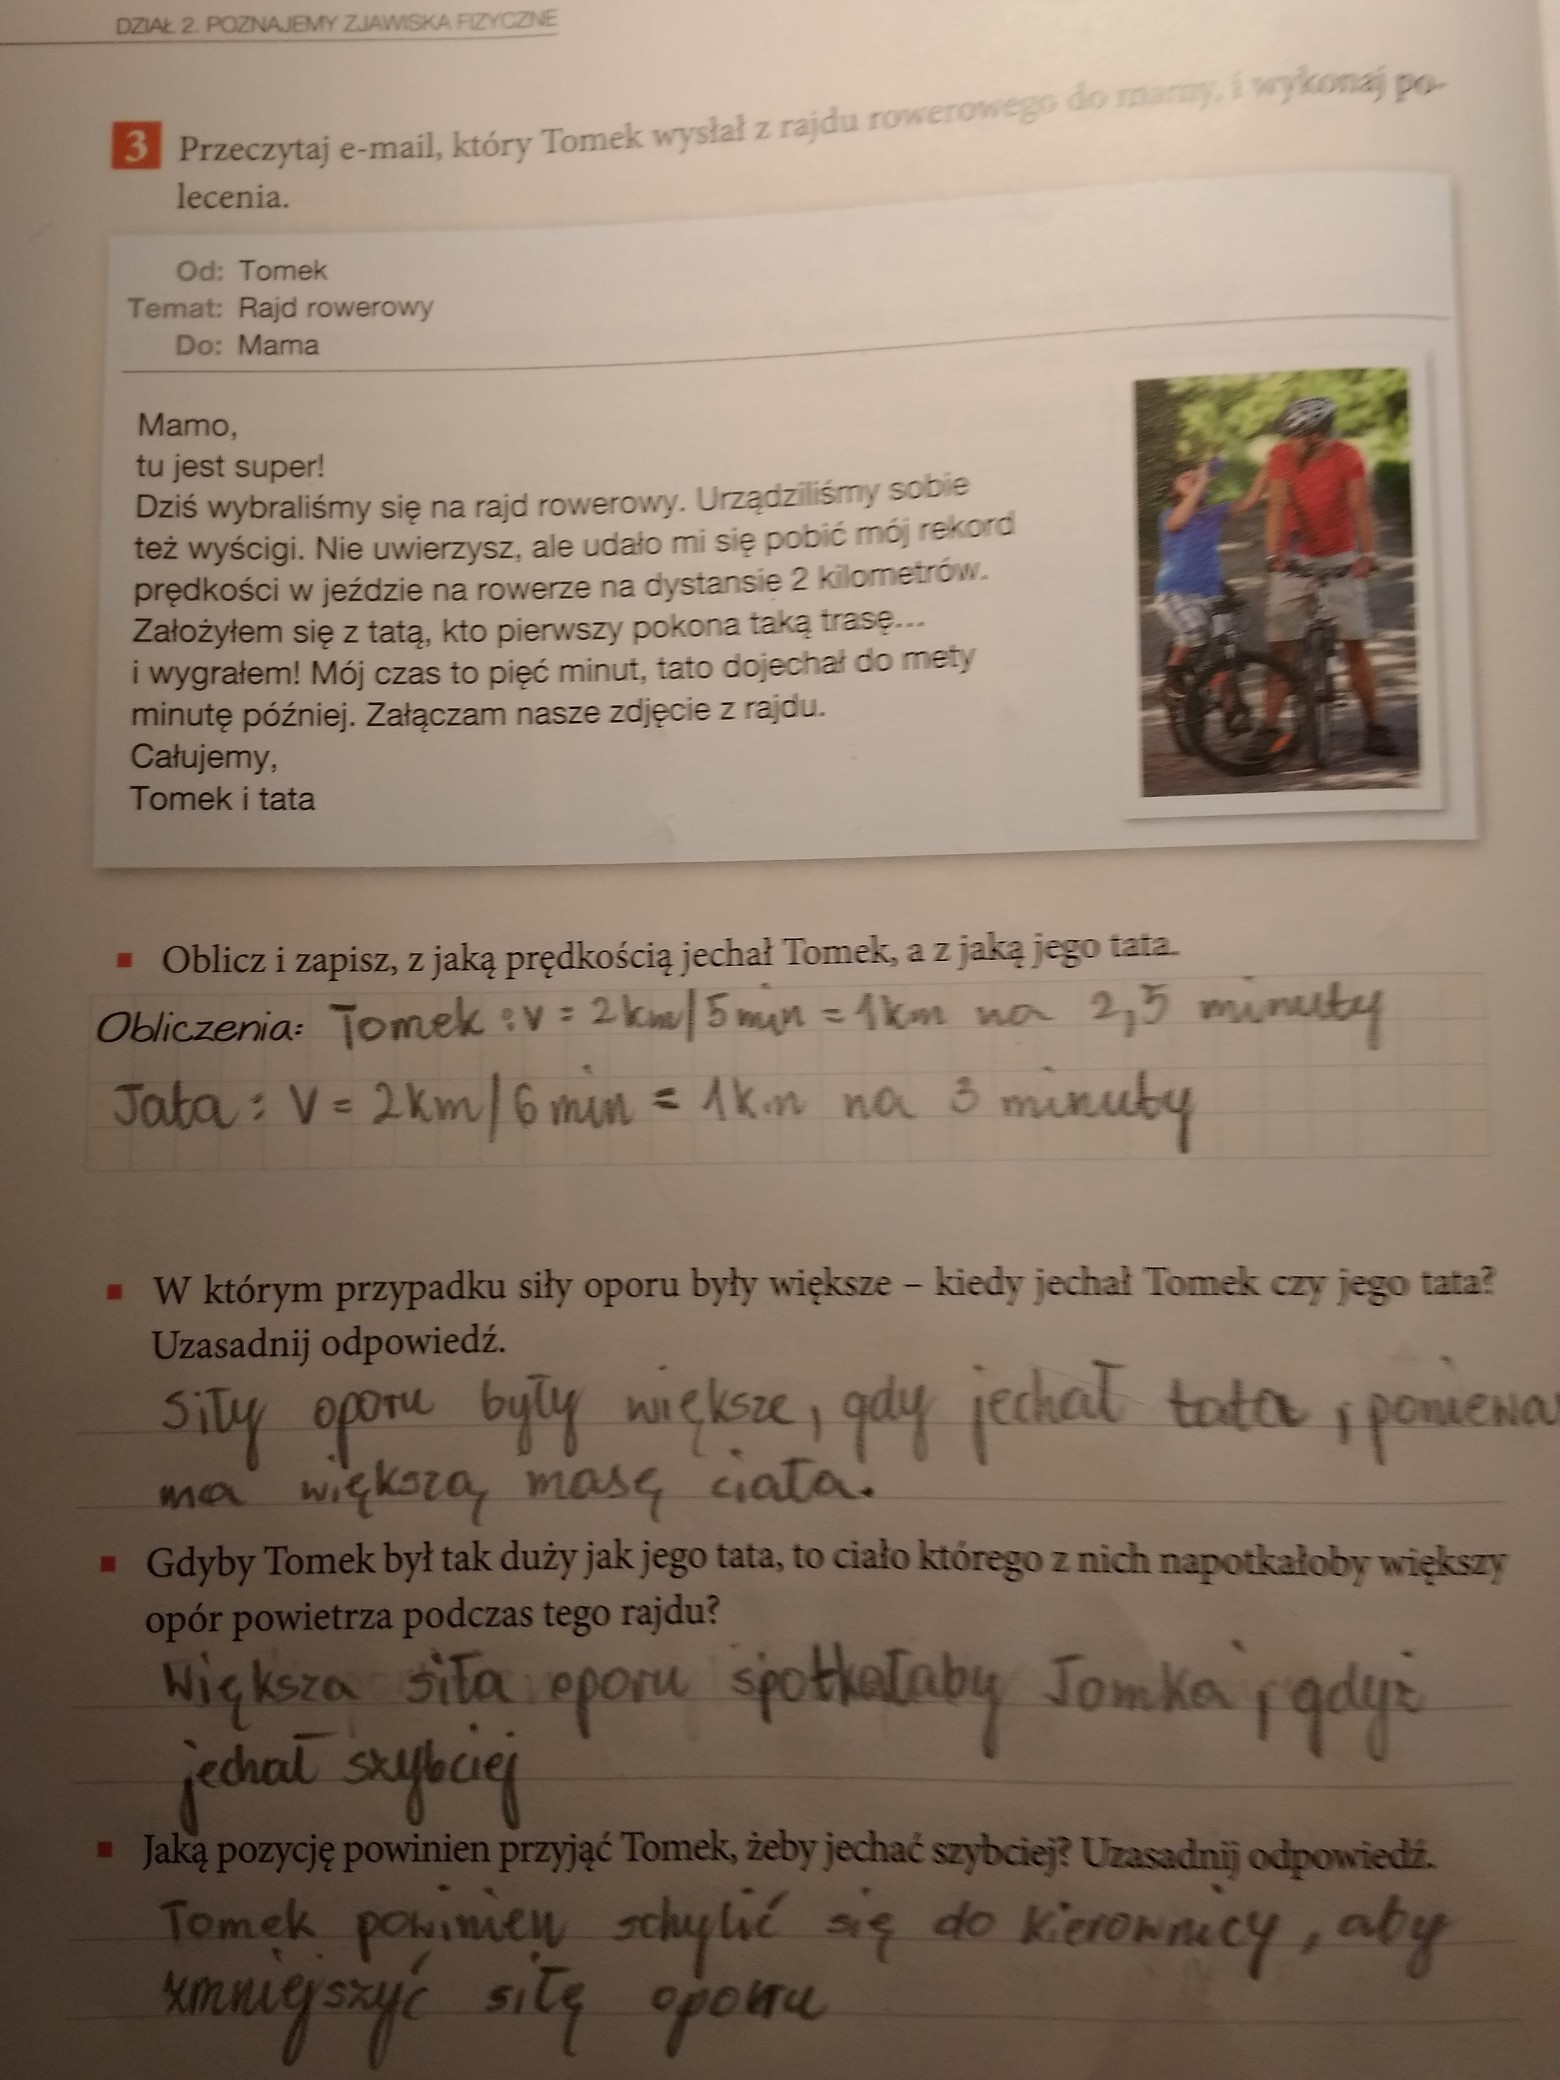 DZIAŁ 2. POZNAJEMY ZJAWISKA FIZYCZNE
3 Przeczytaj e-mail, który Tomek wysłał z rajdu rowerowego do mamy, i wykonaj po-
lecenia.
Od: Tomek
Temat: Rajd rowerowy
Do: Mama
Mamo,
tu jest super!
Dziś wybraliśmy się na rajd rowerowy. Urządziliśmy sobie
też wyścigi. Nie uwierzysz, ale udało mi się pobić mój rekord
prędkości w jeździe na rowerze na dystansie 2 kilometrów.
Założyłem się z tatą, kto pierwszy pokona taką trasę...
i wygrałem! Mój czas to pięć minut, tato dojechał do mety
minutę później. Załączam nasze zdjęcie z rajdu.
Całujemy,
Tomek i tata
▪ Oblicz i zapisz, z jaką prędkością jechał Tomek, a z jaką jego tata.
Obliczenia: Tomek : v = 2 km/5 min = 1km na 2,5 minuty
Tata : V = 2km/6 min = 1km na 3 minuty
▪ W którym przypadku siły oporu były większe – kiedy jechał Tomek czy jego tata?
Uzasadnij odpowiedź.
Siły oporu były większe, gdy jechał tata, poniewa
ma większą masę ciała.
▪ Gdyby Tomek był tak duży jak jego tata, to ciało którego z nich napotkałoby większy
opór powietrza podczas tego rajdu?
Większa siła oporu spotkałaby Tomka, gdyż
jechał szybciej
▪ Jaką pozycję powinien przyjąć Tomek, żeby jechać szybciej? Uzasadnij odpowiedź.
Tomek powinien schylić się do kierownicy, aby
zmniejszyć siłę oporu